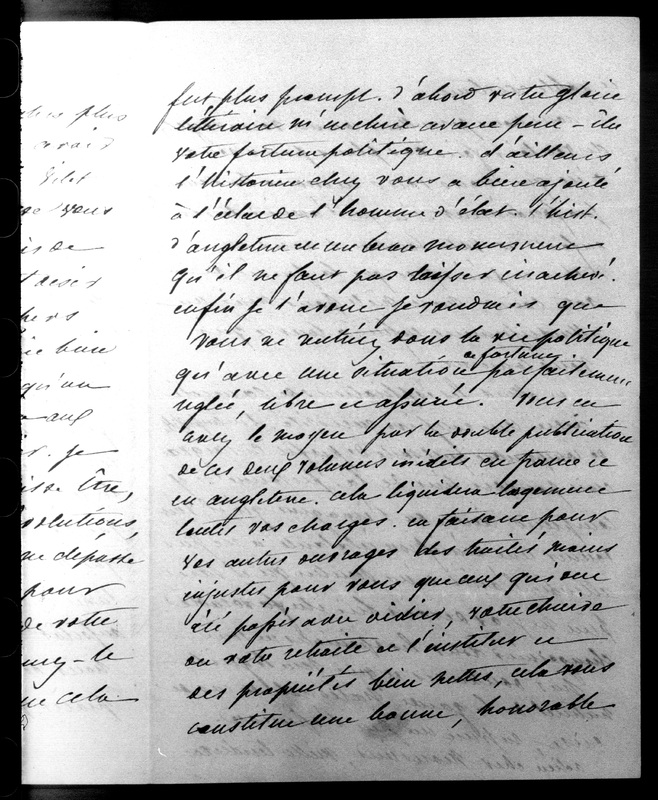 plus
avais
Vilet
vous
is de
désir
hers
bien
qu'un
aux
je
être,
solutions,
dépasse
pour
de votre
le
cela
fut plus prompt. d'abord votre gloire
littéraire m'est chère avant
votre fortune politique. d'ailleurs
l'historien chez vous a bien ajouté
à l'éclat de l'homme d'état. l'hist.
d'angleterre est un beau monument
qu'il ne faut pas laisser inachevé.
enfin je l'avoue je voudrais que
vous ne rentriez dans la vie politique
qu'avec une situation de fortune parfaitement
réglée, libre et assurée. vous en
avez le moyen par la double publication
de ces deux volumes inédits en france et
en angleterre. cela liquidera largement
toutes vos charges. en faisant pour
vos autres ouvrages des traités moins
injustes pour vous que ceux qui ont
été passés avec didier, votre chaire
ou votre retraite et l'institut et
des propriétés bien nettes, cela vous
constitue une bonne, honorable